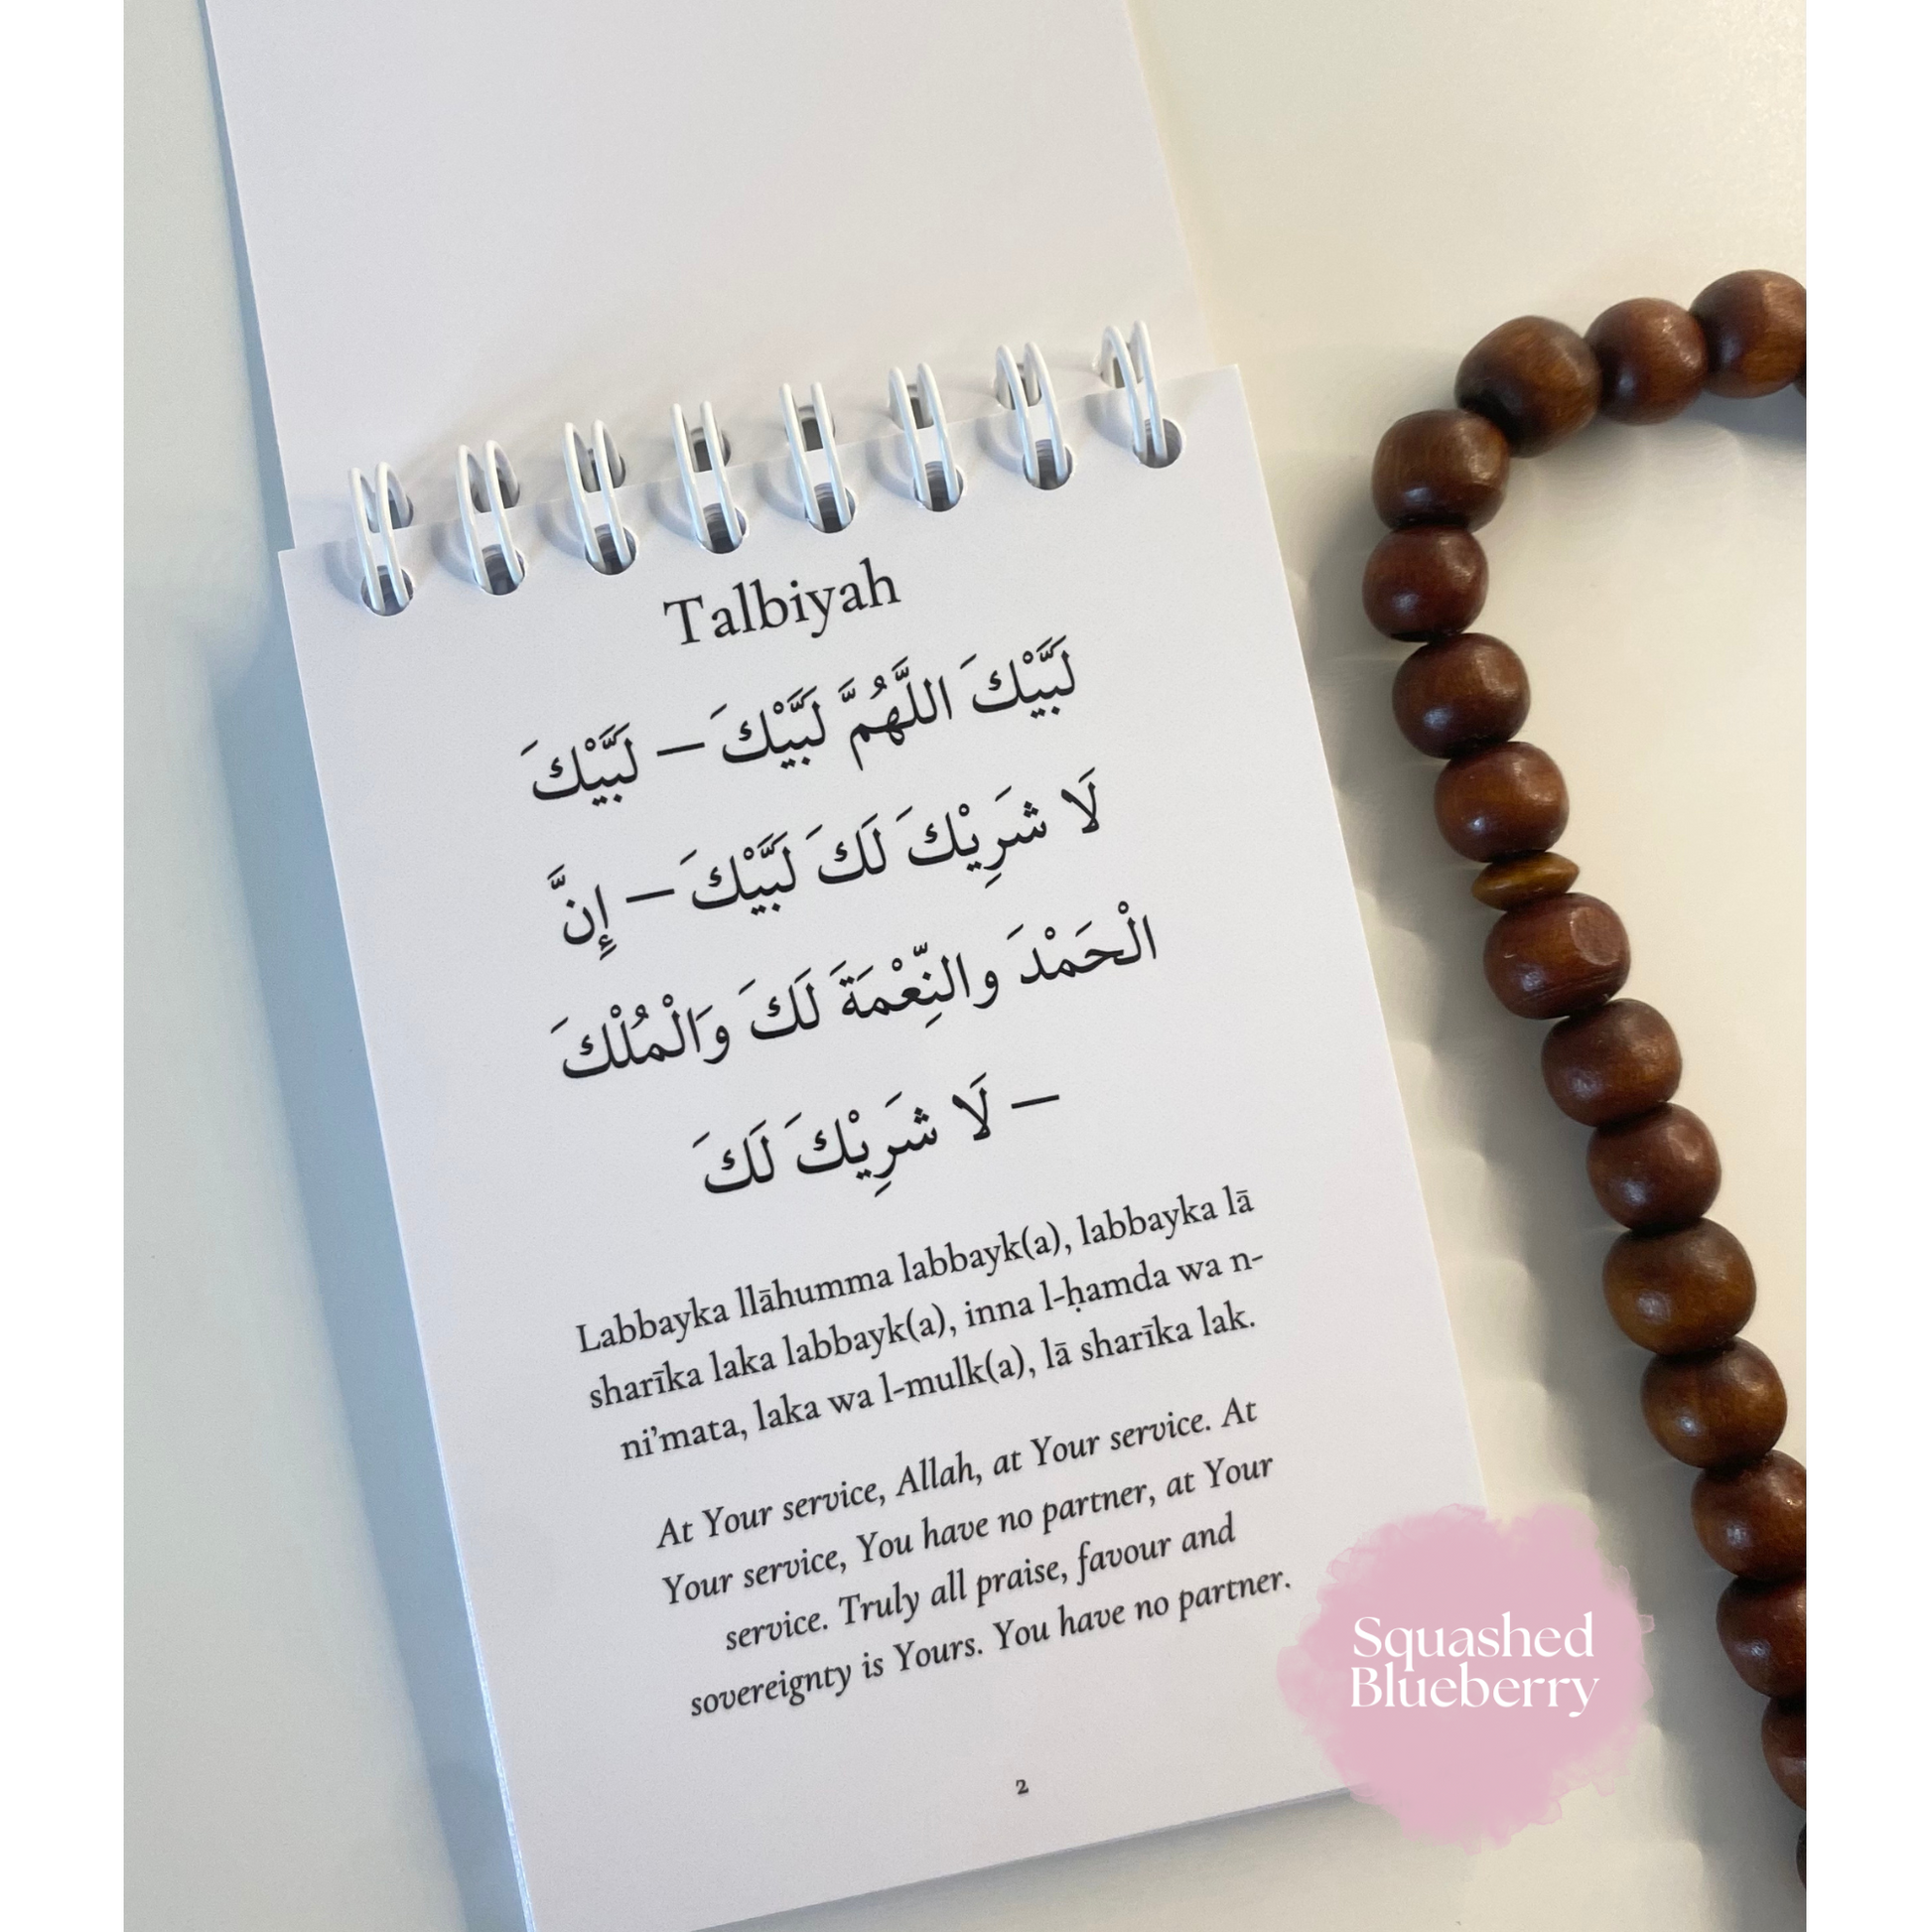 Talbiyah
لَبَّيْكَ اللَّهُمَّ لَبَّيْكَ – لَبَّيْكَ
لَا شَرِيْكَ لَكَ لَبَّيْكَ – إِنَّ
الْحَمْدَ والنِّعْمَةَ لَكَ وَالْمُلْكَ
– لَا شَرِيْكَ لَكَ
Labbayka llāhumma labbayk(a), labbayka lā
sharīka laka labbayk(a), inna l-ḥamda wa n-
ni’mata, laka wa l-mulk(a), lā sharīka lak.
At Your service, Allah, at Your service. At
Your service, You have no partner, at Your
service. Truly all praise, favour and
sovereignty is Yours. You have no partner.
2
Squashed
Blueberry